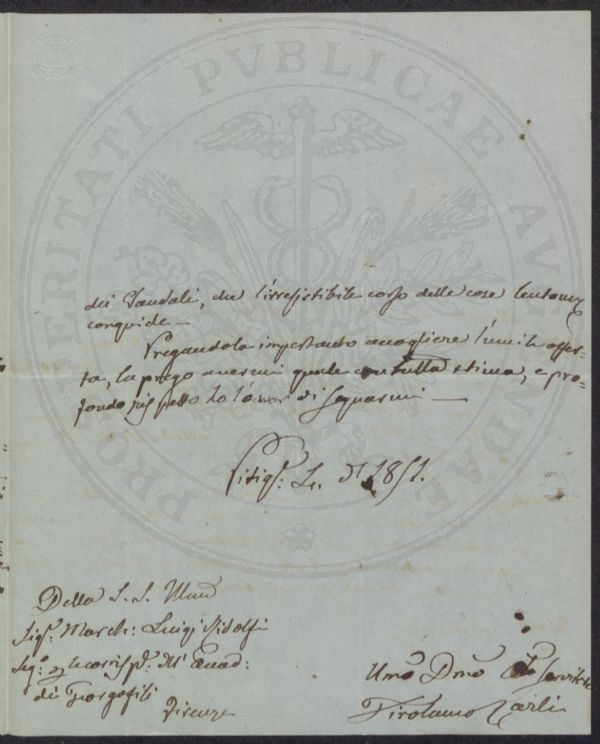 PROSPERITATI PVBLICAE AVGENDAE
dei Vandali, che l'irresistibile corso delle cose lentamte
conquide —
Pregandola impertanto accogliere l'umile offer-
ta, la prego avermi quale con tutta stima, e pro-
fondo rispetto ho l'onor di segnarmi —
Pitigo. Li 1851.
Della S. S. Illma
Sigr. March: Luigi Ridolfi
Segro. Corrispte. dell' Accad:
di Georgofili
Firenze
Umo Dmo Servitore
Girolamo Carli